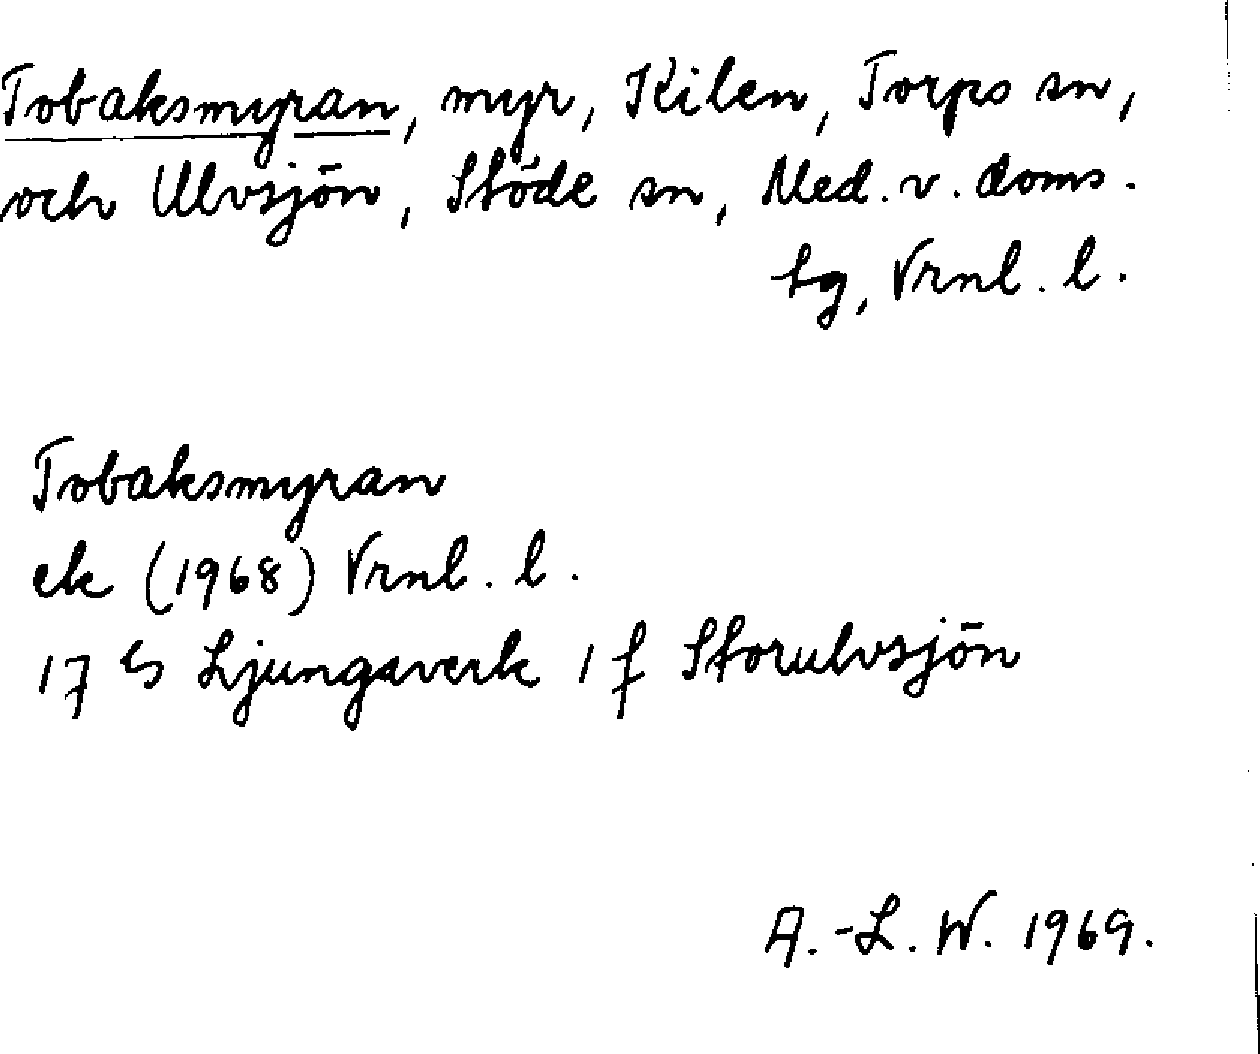 Tobaksmyran, myr, Kilen, Torps sn,
och Ulvsjön, Stöde sn, Med. v. doms.
sg, Vrnl. l.
Tobaksmyran
ek (1968) Vrnl. l.
17 G Ljungaverk 1 f Storulvsjön
A.-L. W. 1969.